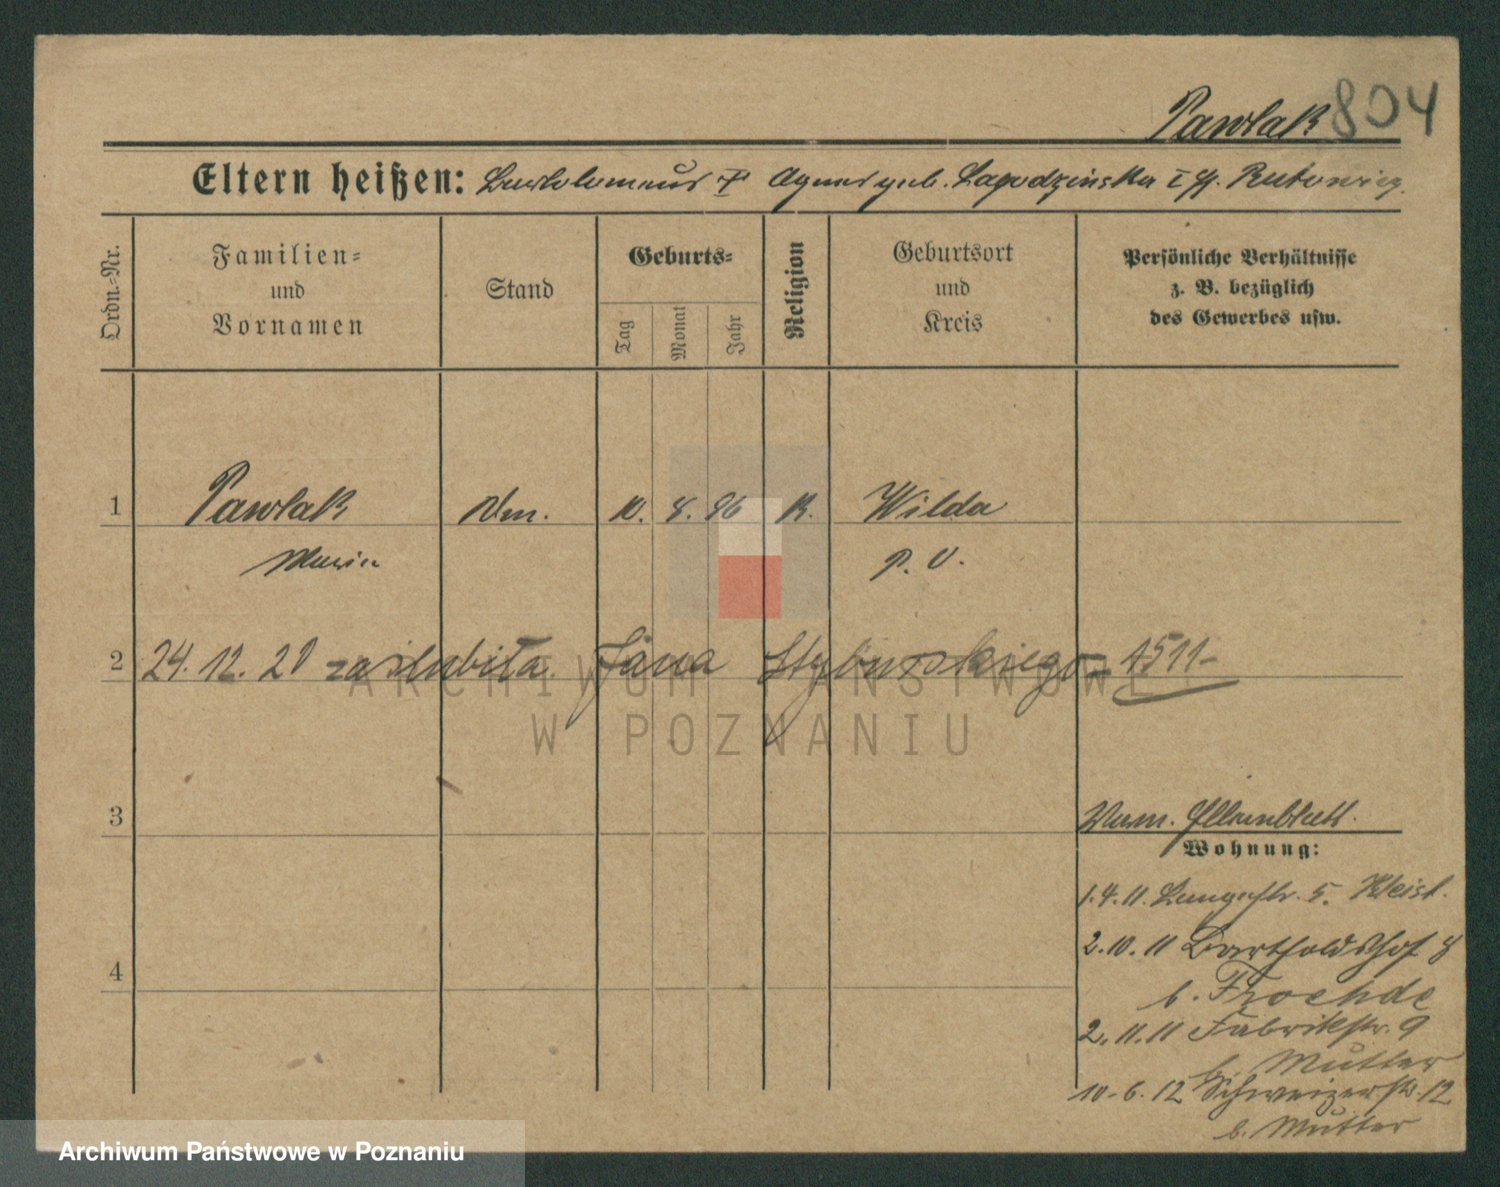 Pawlak 804
Eltern heißen: Bartolomäus † Agnes geb. Lagodzinska
Ordn.-Nr.
Familien- und Vornamen
Stand
Geburts-
Tag
Monat
Jahr
Religion
Geburtsort und Kreis
Persönliche Verhältnisse
z. B. bezüglich
des Gewerbes usw.
1 Pawlak 10. 8. 96 K. Wilda
Maria P. O.
2 24. 12. 20 zaślubiła Jana 1511
3
Wohnung:
1.4.11. Langestr. 5. Kleist.
4
2.10.11 Bartholdshof 8
b. Froehde
2.11.11 Fabrikstr. 9
b. Mutter
10.6.12 Schweizerstr. 12
b. Mutter
ARCHIWUM PAŃSTWOWE
W POZNANIU
Archiwum Państwowe w Poznaniu